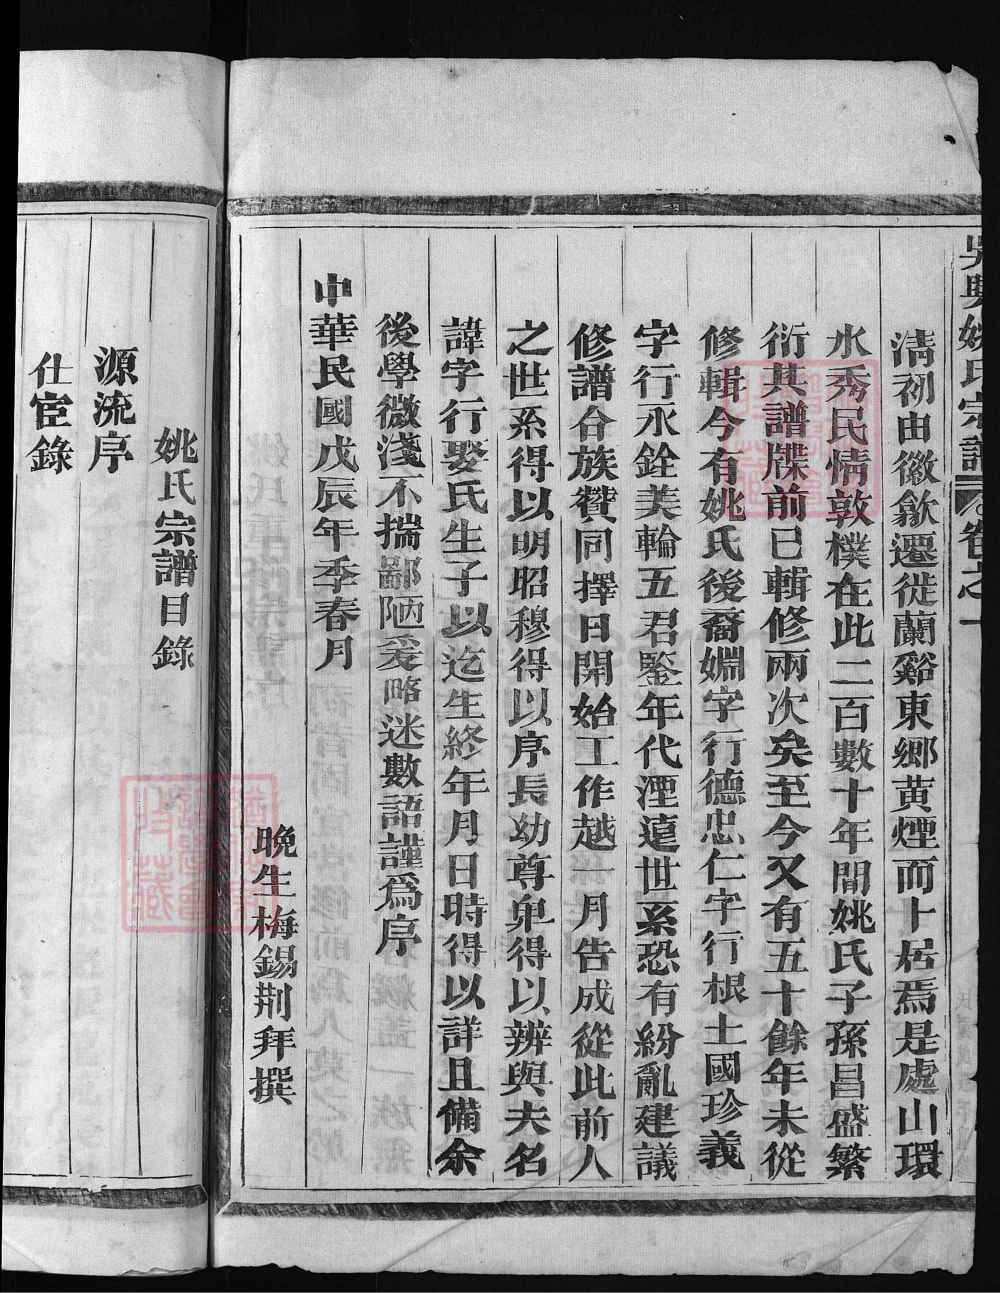 吳興姚氏宗譜 卷之一
清初由徽歙遷徙蘭谿東鄉黃煙而卜居焉是處山環
水秀民情敦樸在此二百數十年間姚氏子孫昌盛繁
衍其譜牒前已輯修兩次矣至今又有五十餘年未從
修輯今有姚氏後裔嫺字行德忠仁字行根土國珍義
字行永銓美輪五君鑒年代湮遠世系恐有紛亂建議
修譜合族贊同擇日開始工作越一月告成從此前人
之世系得以明昭穆得以序長幼尊卑得以辨與夫名
諱字行娶氏生子以迄生終年月日時得以詳且備余
後學微淺不揣鄙陋爰略述數語謹爲序
中華民國戊辰年季春月
晚生梅錫荆拜撰
姚氏宗譜目錄
源流序
仕宦錄